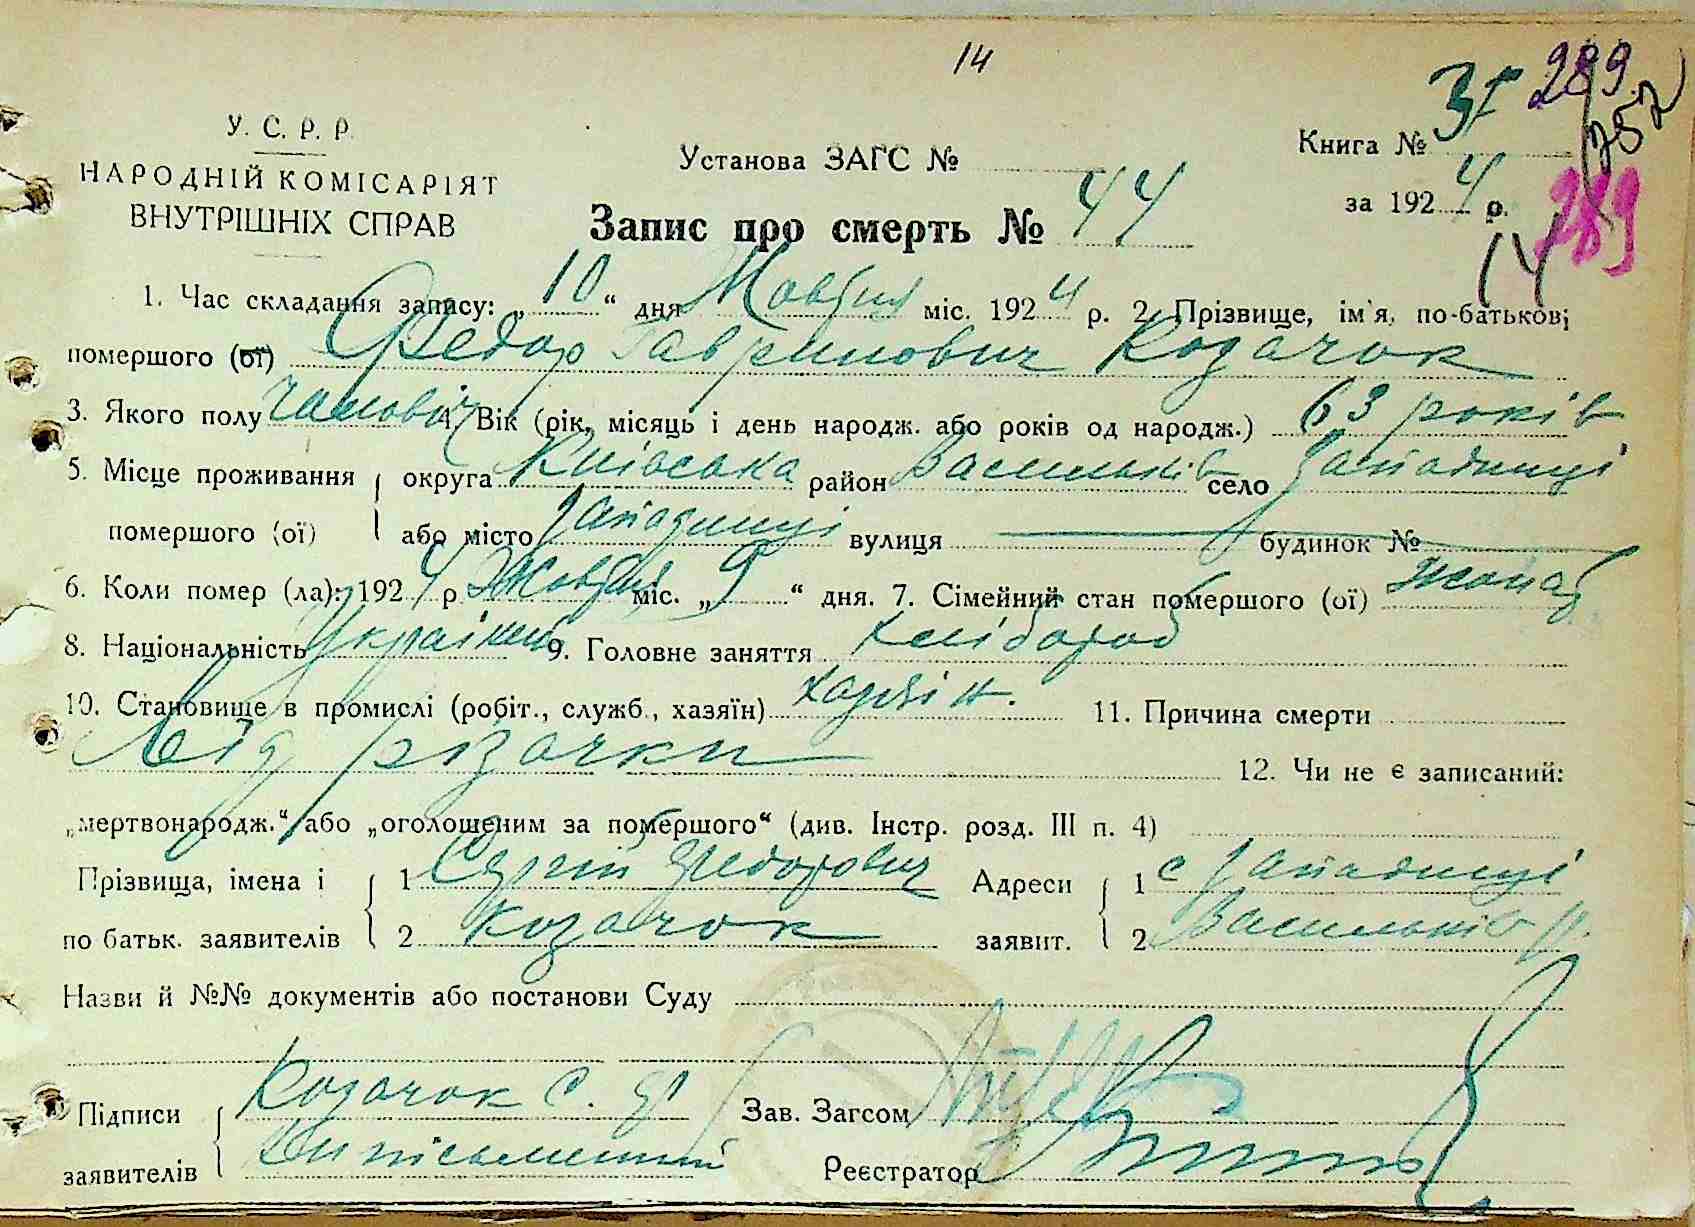 14
289
252
У. С. Р. Р.
НАРОДНІЙ КОМІСАРІЯТ
ВНУТРІШНІХ СПРАВ
Установа ЗАГС №
Книга № 37
за 1924 р.
289
14
Запис про смерть № 44
1. Час складання запису: „10“ дня Жовтня міс. 1924 р. 2. Прізвище, ім'я, по-батькові
помершого (ої) Федор Гаврилович Козачок
3. Якого полу чоловіч 4. Вік (рік, місяць і день народж. або років од народж.) 63 років
5. Місце проживання округа Київська район Васильків село Западинці
помершого (ої) або місто Западинці вулиця будинок №
6. Коли помер (ла): 1924 р. Жовтня міс. „9“ дня. 7. Сімейний стан помершого (ої) жонат
8. Національність Українец 9. Головне заняття хлібороб
10. Становище в промислі (робіт., служб., хазяїн) хазяїн. 11. Причина смерти
Від різачки 12. Чи не є записаний:
„мертвонародж.“ або „оголошеним за померше­го“ (див. Інстр. розд. III п. 4)
Прізвища, імена і 1 Сергій Федорович Адреси 1 с Западинці
по батьк. заявителів 2 Козачок заявит. 2 Васильків р.
Назви й №№ документів або постанови Суду
Підписи Козачок С. Ф Зав. Загсом
заявителів Реєстратор